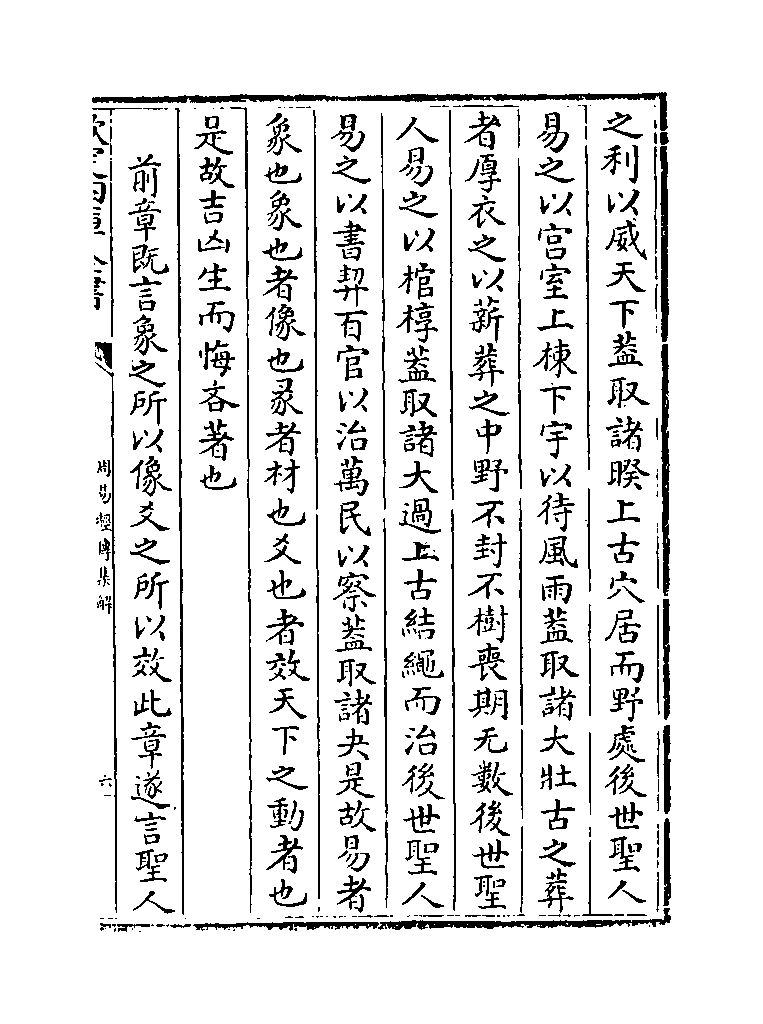 之利以威天下蓋取諸暌上古穴居而野處後世聖人
易之以宫室上棟下宇以待風雨蓋取諸大壯古之葬
者厚衣之以薪葬之中野不封不樹喪期无數後世聖
人易之以棺椁蓋取諸大過上古結繩而治後世聖人
易之以書契百官以治萬民以察蓋取諸夬是故易者
象也象也者像也彖者材也爻也者效天下之動者也
是故吉凶生而悔吝著也
前章既言象之所以像爻之所以效此章遂言聖人
欽定四庫全書
周易經傳集解
六